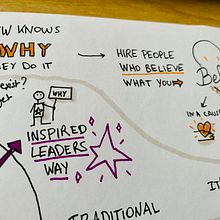 W KNOWS
WHY
EY DO IT
HIRE PEOPLE
WHO BELIEVE
WHAT YOU
Bel
exist?
get
WHY
IN A CAUS
INSPIRED
LEADERS
WAY
TRADITIONAL
IT